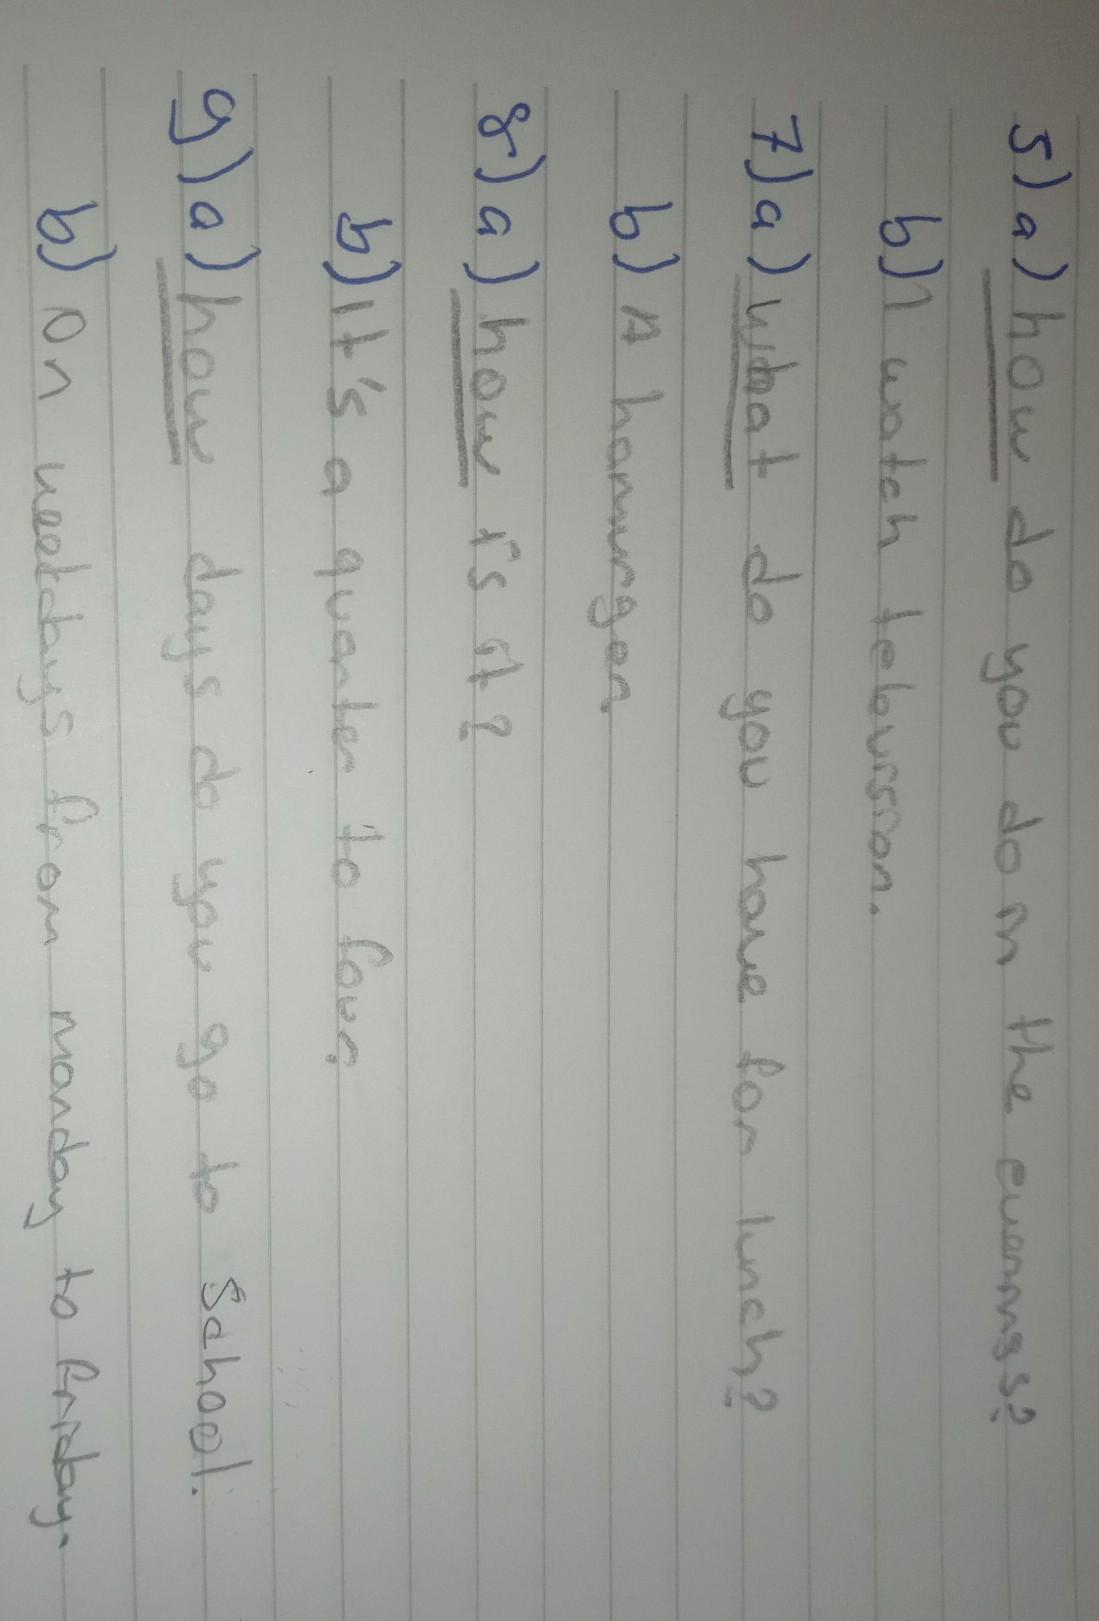 5) a) how do you do in the evenings?
b) I watch televission.
7) a) what do you have for lunch?
b) A hamurger.
8) a) how is it?
b) It's a quarter to four.
9) a) how days do you go to School.
b) On weekdays from monday to Friday.